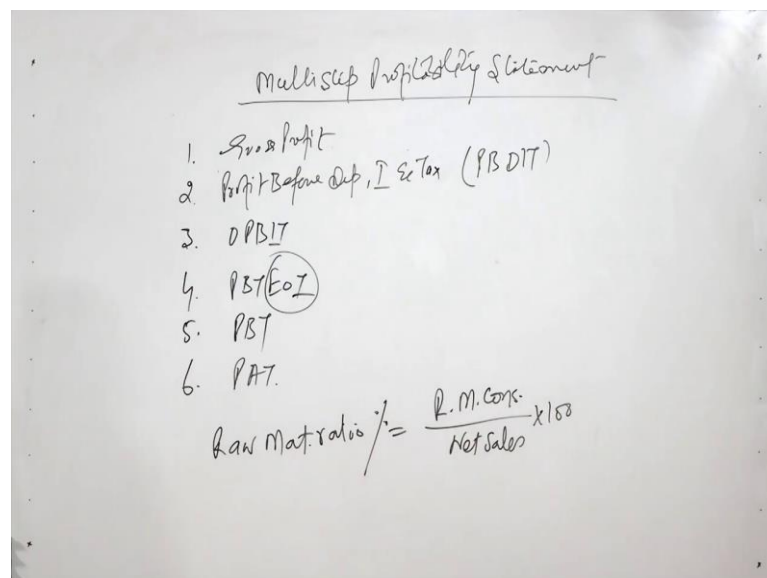 Multistep Profitability Statement
1. Gross Profit
2 Profit Before Dep, I & Tax (PBDIT)
3. OPBIT
4. PBT EOI
5. PBT
6. PAT.
Raw Mat. ratio % = R.M. Cons. / Net Sales X100